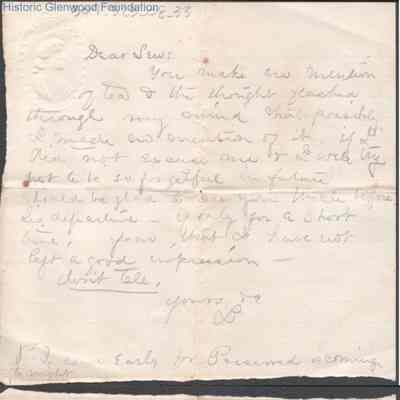 Historic Glenwood Foundation
Dear Sews:
You make no mention
of tea & the thought flashed
through my mind that possibly
I made no mention of it. if I
did not excuse me & I will try
not to be so forgetful in future
should be glad to see you there before
his departure — if only for a short
time, yours, that I have not
left a good impression —
don't tell.
yours
L
come Early for Preserved is coming
to night